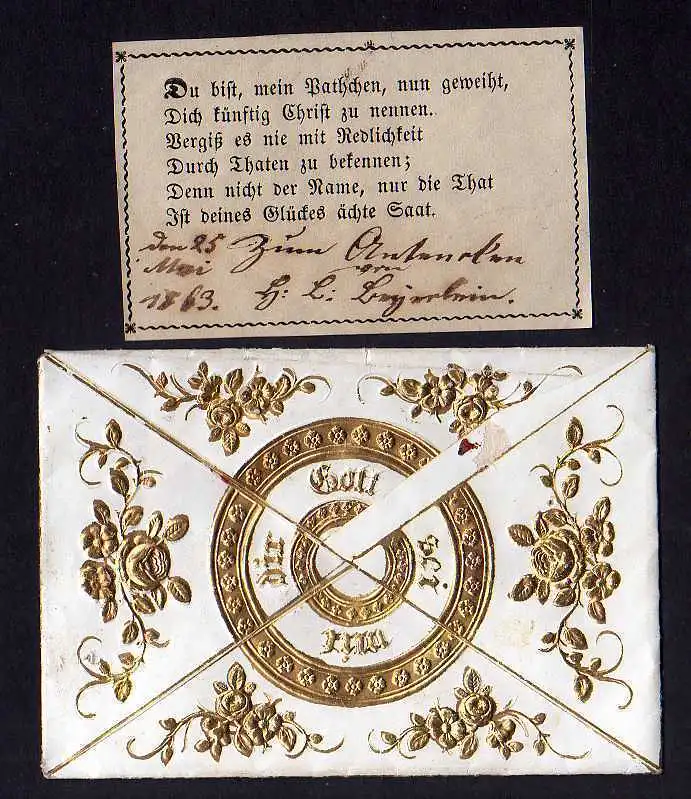 Du bist, mein Pathchen, nun geweiht,
Dich künftig Christ zu nennen.
Vergiß es nie mit Redlichkeit
Durch Thaten zu bekennen;
Denn nicht der Name, nur die That
Ist deines Glückes ächte Saat.
den 25 Zum Antencken
Mai von
1863. H: L: Beyerlein.
Gott
sei
mit
dir